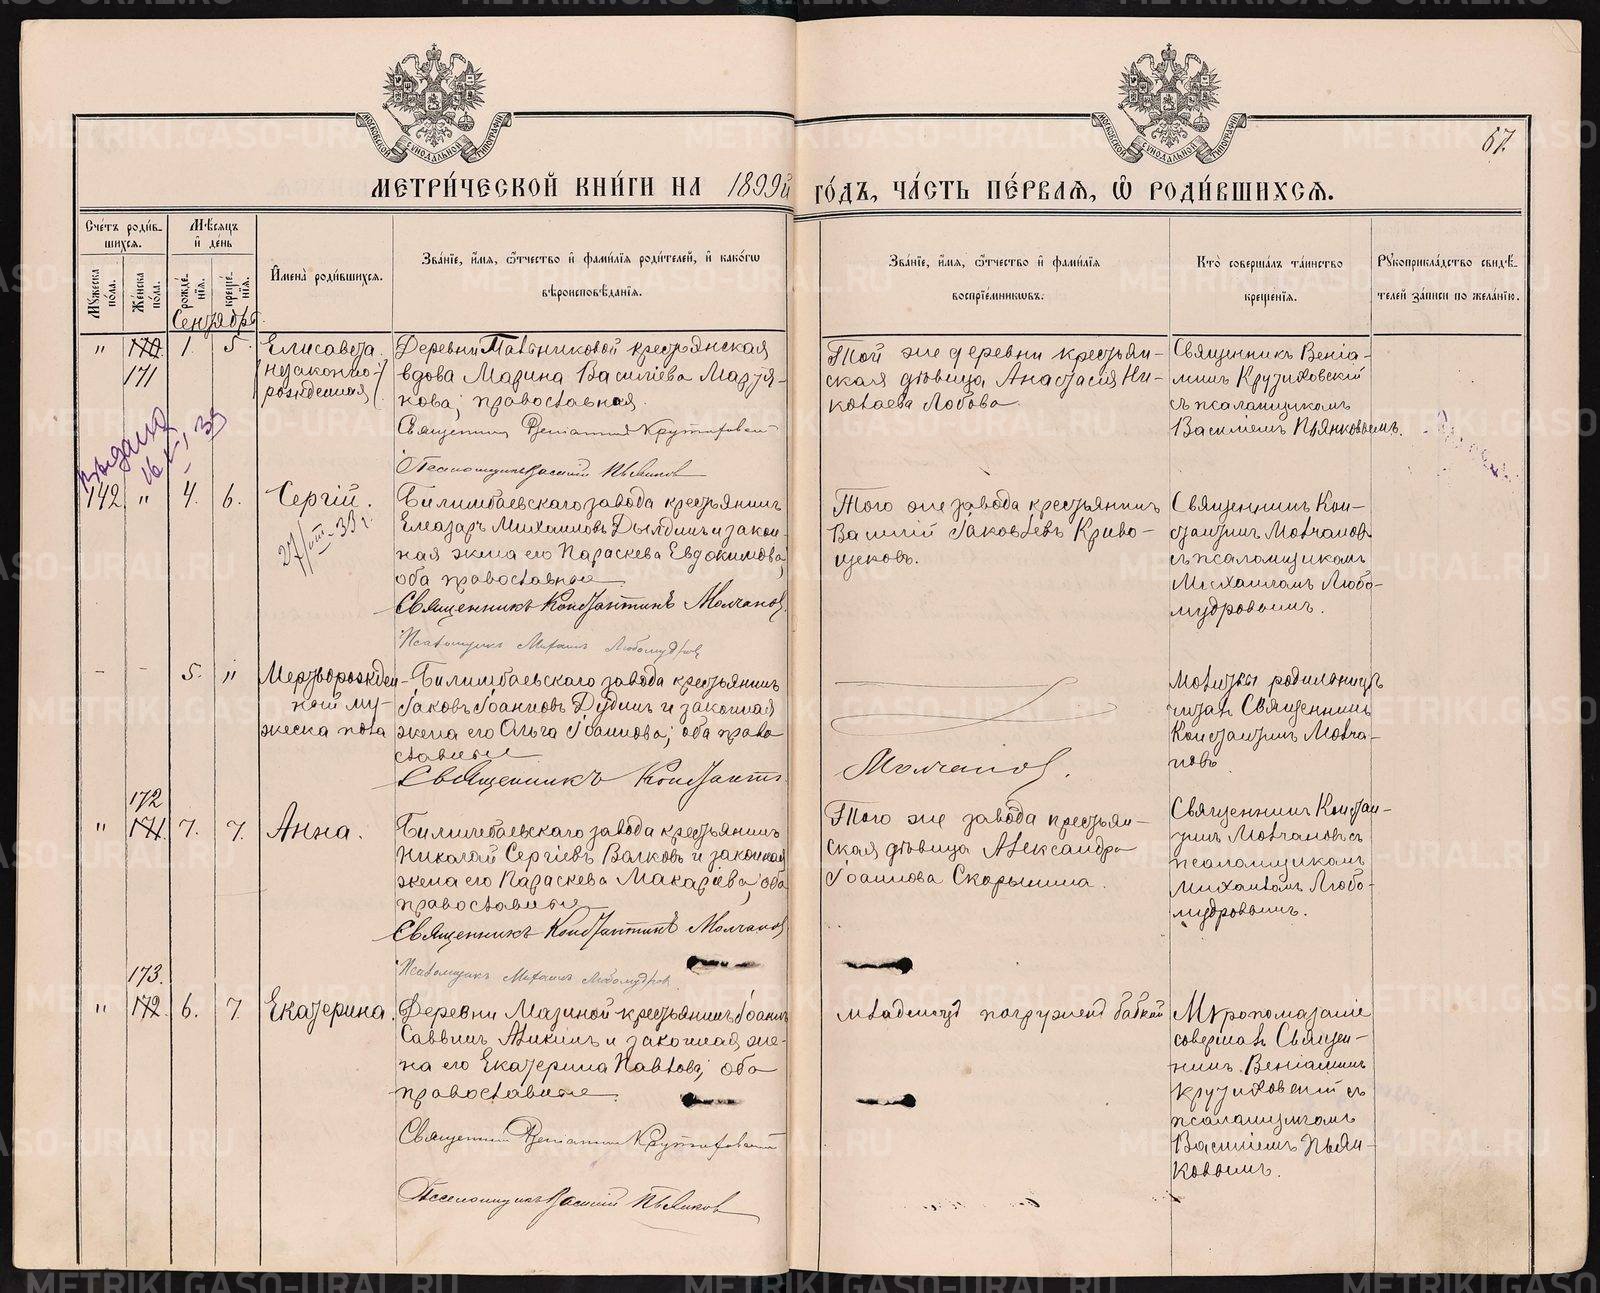 МЕТРИ́ЧЕСКОЙ КНИ́ГИ НА 1899й ГО́ДЪ, ЧА́СТЬ ПЕ́РВАЯ, Ѿ РОДИ́ВШИХСЯ.
67.
МОСКОВСКОЙ СѴНОДАЛЬНОЙ ТИПОГРАФІИ
МОСКОВСКОЙ СѴНОДАЛЬНОЙ ТИПОГРАФІИ
Сче́тъ роди́в-
шихся.
Мѣ́сяцъ
и҆ де́нь
Мꙋ́жеска по́ла.
Же́нска по́ла.
рожде́нїя.
креще́нїя.
И҆мена̀ роди́вшихся.
Зва́нїе, и҆́мя, ѻ҆́тчество и҆ фами́лїя роди́телей, и҆ како́гѡ
вѣроисповѣ́данїя.
Зва́нїе, и҆́мя, ѻ҆́тчество и҆ фами́лїя
воспрїе́мникѡвъ.
Кто̀ соверша́лъ та́инство
креще́нїя.
Рꙋкоприкла́дство свидѣ́-
телей за́писи по жела́нїю.
Сентябрь.
" 170 1. 5. Елисавета
171
(незаконно-
рожденная).
Деревни крестьянская
вдова Марина Василіева
православная.
Священникъ Веніаминъ Крутиховскій
Псаломщикъ Василій Пьянковъ
Той же деревни крестьян-
ская дѣвица Анастасія Ни-
колаева Лобова.
Священникъ Веніа-
минъ Крутиховскій
съ псаломщикомъ
Василіемъ Пьянковымъ.
выдана
142. " 4. 6. Сергій.
Билимбаевскаго завода крестьянинъ
Елеазаръ Михаиловъ Дылдинъ и закон-
ная жена его Параскева Евдокимова,
оба православные
Священникъ Константинъ Молчановъ.
Псаломщикъ Михаилъ Любомудровъ
Того же завода крестьянинъ
Василій Іаковлевъ Криво-
щековъ.
Священникъ Кон-
стантинъ Молчановъ
съ псаломщикомъ
Михаиломъ Любо-
мудровымъ.
- - 5. " Мертворожден-
ный му-
жеска пола
Билимбаевскаго завода крестьянинъ
Іаковъ Іоанновъ Дудинъ и законная
жена его Ольга Іоаннова; оба право
славные
Священникъ Константинъ
Молчановъ.
Молитвы родильницѣ
читалъ Священникъ
Константинъ Молча-
новъ
172
" 171 7. 7. Анна.
Билимбаевскаго завода крестьянинъ
Николай Сергіевъ Волковъ и законная
жена его Параскева Макаріева, оба
православные
Священникъ Константинъ Молчановъ
Псаломщикъ Михаилъ Любомудровъ.
Того же завода крестьян-
ская дѣвица Александра
Іоаннова Скорынина.
Священникъ Констан-
тинъ Молчановъ съ
псаломщикомъ
Михаиломъ Любо-
мудровымъ.
173.
" 172 6. 7. Екатерина.
Деревни Мазиной крестьянинъ Іоаннъ
Саввинъ Аликинъ и законная же-
на его Екатерина Павлова; оба
православные.
Священникъ Веніаминъ Крутиховскій
Псаломщикъ Василій Пьянковъ
младенецъ погруженъ бабкой
Мѵропомазаніе
совершалъ Священ-
никъ Веніаминъ
Крутиховскій съ
псаломщикомъ
Василіемъ Пьян-
ковымъ.
METRIKI.GASO-URAL.RU